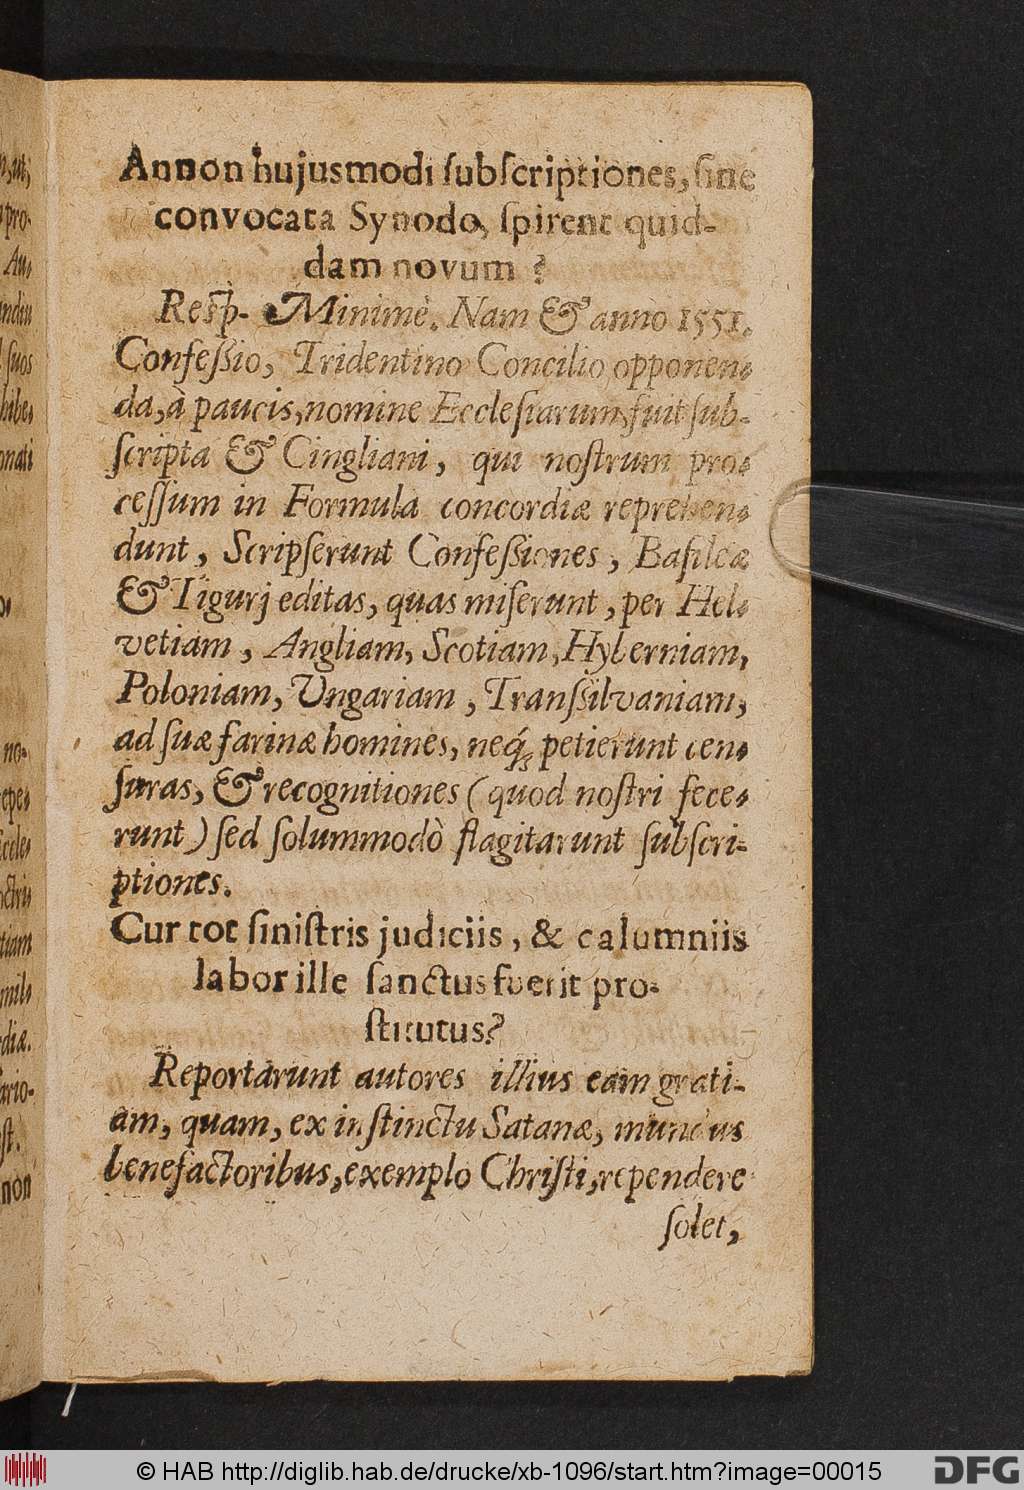 Annon hujusmodi ſubſcriptiones, ſine
convocata Synodo, ſpirent quid-
dam novum ?
Reſp. Minimè. Nam & anno 1551.
Confeſsio, Tridentino Concilio opponen-
da, à paucis, nomine Eccleſiarum, fuit ſub-
ſcripta & Cingliani, qui noſtrum pro-
ceſſum in Formula concordiæ reprehen-
dunt, Scripſerunt Confeſsiones, Baſileæ
& Tigurj editas, quas miſerunt, per Hel-
vetiam, Angliam, Scotiam, Hyberniam,
Poloniam, Ungariam, Tranſsilvaniam,
ad ſuæ farinæ homines, neq́; petierunt cen-
ſuras, & recognitiones (quod noſtri fece-
runt) ſed ſolummodò flagitarunt ſubſcri-
ptiones.
Cur tot ſiniſtris judiciis, & calumniis
labor ille ſanctus fuerit pro-
ſtitutus?
Reportârunt autores illius eam grati-
am, quam, ex inſtinctu Satanæ, mundus
benefactoribus, exemplo Chriſti, rependere
ſolet,
n, ut,
pro-
Au-
ſuos
hibe-
no-
epe-
ctri-
tiam
diæ.
ario-
ſt.
non
© HAB http://diglib.hab.de/drucke/xb-1096/start.htm?image=00015
DFG